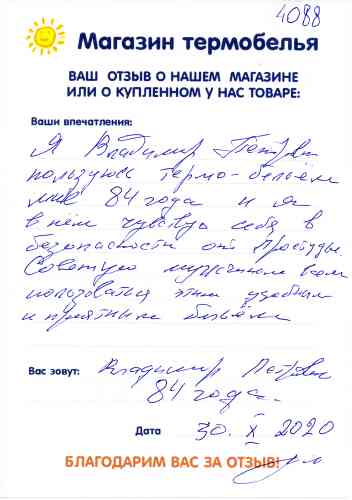 4088
Магазин термобелья
ВАШ ОТЗЫВ О НАШЕМ МАГАЗИНЕ
ИЛИ О КУПЛЕННОМ У НАС ТОВАРЕ:
Ваши впечатления:
Я Владимир Петрович
пользуюсь термо-бельём
мне 84 года и я
в нём чувствую себя в
безопасности от простуды.
Советую мужчинам всем
пользоваться этим удобным
и приятным бельём
Вас зовут: Владимир Петрович
84 года.
Дата 30. X 2020
БЛАГОДАРИМ ВАС ЗА ОТЗЫВ!